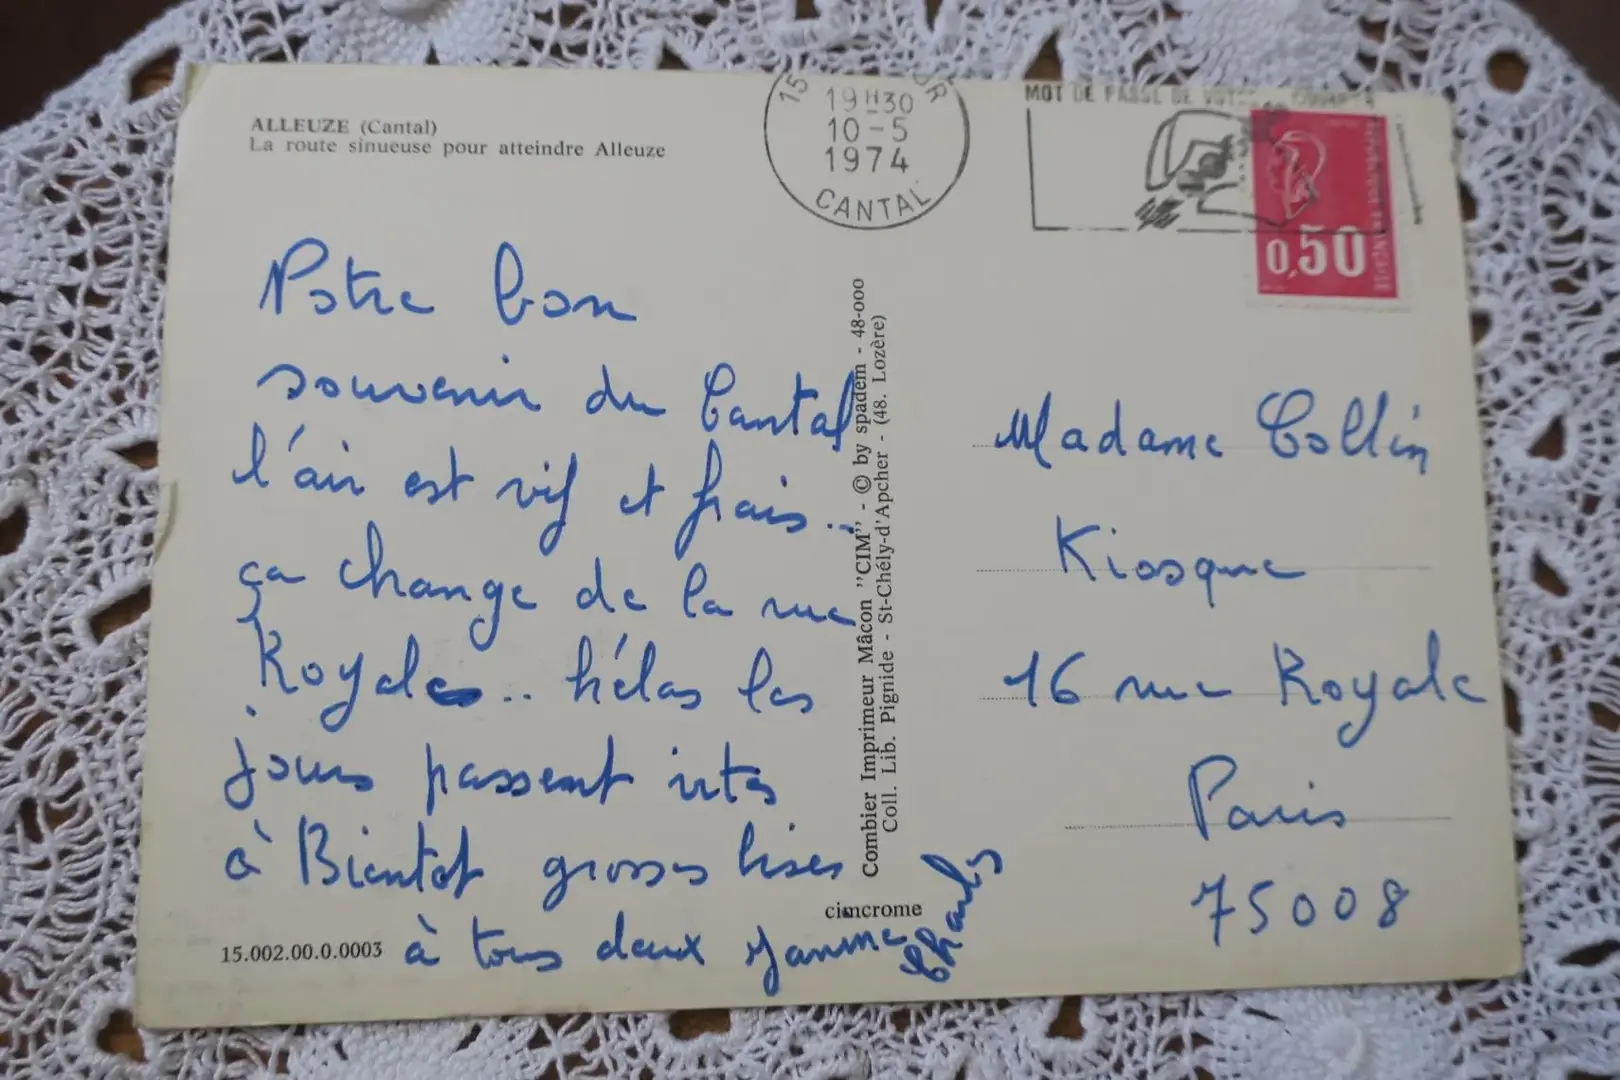 ALLEUZE (Cantal)
La route sinueuse pour atteindre Alleuze
15 UR
19H30
10-5
1974
CANTAL
MOT DE PASSE DE
0,50
Notre bon
souvenir du Cantal
l'air est vif et frais...
ça change de la rue
Royale... hélas les
jours passent vites
à Bientot grosses bises
à tous deux Jeanine
Charles
15.002.00.0.0003
cimcrome
Combier Imprimeur Mâcon "CIM" - © by spadem - 48-000
Coll. Lib. Pignide - St-Chély-d'Apcher - (48. Lozère)
Madame Collin
Kiosque
16 rue Royale
Paris
75008